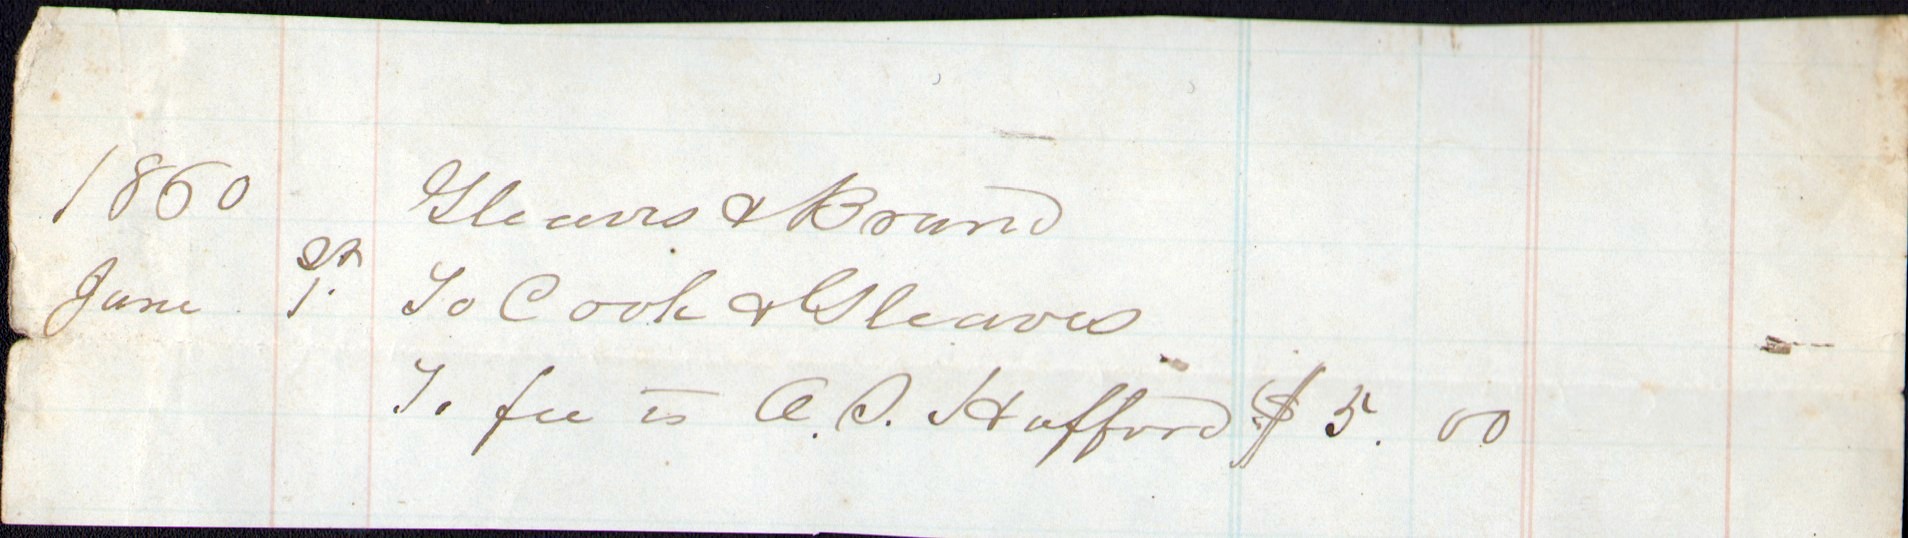 1860 Gleaves & Brand
June 1st To Cook & Gleaves
To fee vs A. S. Hufford $5.00